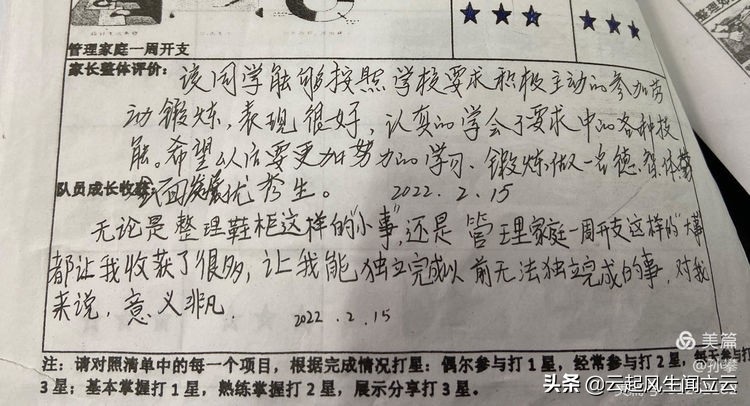 管理家庭一周开支
家长整体评价：
该同学能够按照学校要求积极主动的参加劳
动锻炼，表现很好，认真的学会了要求中的各种技
能。希望以后要更加努力的学习、锻炼做一名德、智、体
队员成长收获
全面发展优秀生。 2022.2.15
无论是整理鞋柜这样的"小事"，还是管理家庭一周开支这样的"大事"
都让我收获了很多，让我能独立完成以前无法独立完成的事，对我
来说，意义非凡。
2022.2.15
注：请对照清单中的每一个项目，根据完成情况打星：偶尔参与打1星，经常参与打2星，每天参与打
3星；基本掌握打1星，熟练掌握打2星，展示分享打3星。
美篇
@孙攀
头条 @云起风生闻立云